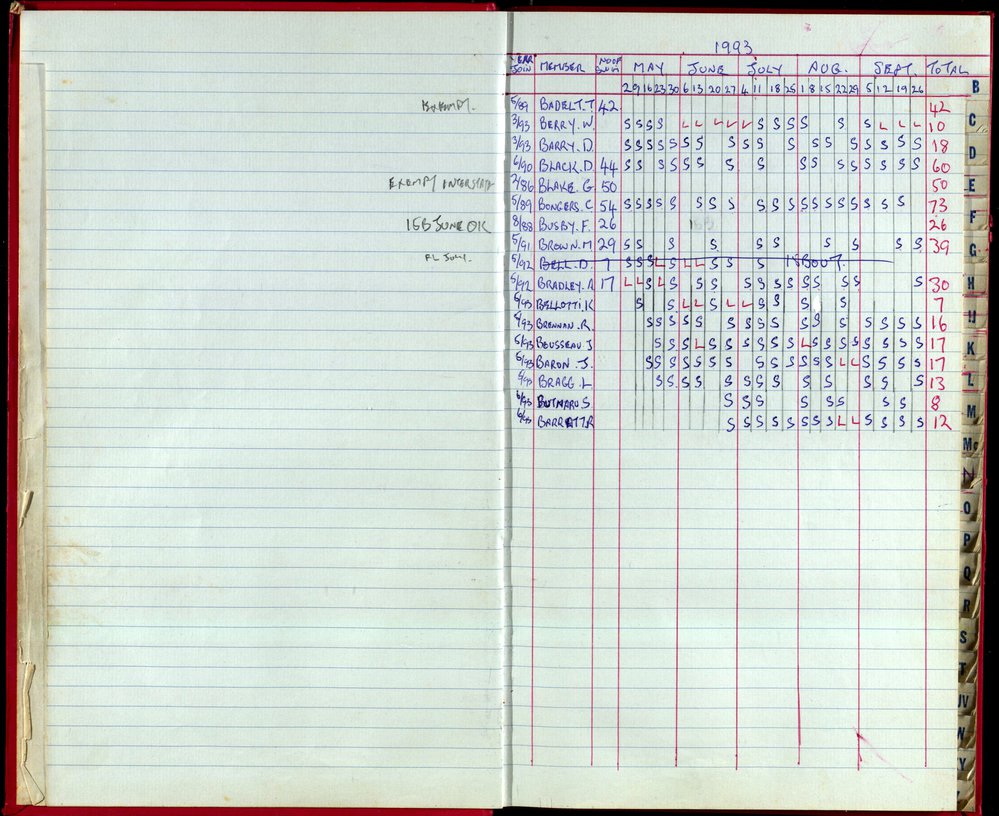 1993
YEAR JOIN MEMBER NO OF SWIM MAY JUNE JULY AUG. SEPT. TOTAL
2 9 16 23 30 6 13 20 27 4 11 18 25 1 8 15 22 29 5 12 19 26
EXEMPT. 5/89 BADELT.T 42 42
3/93 BERRY.W. S S S S L L L L L S S S S S S L L L 10
3/93 BARRY.D. S S S S S S S S S S S S S S S S S S 18
6/90 BLACK.D. 44 S S S S S S S S S S S S S S S S 60
EXEMPT INTERSTATE 2/86 BLAKE.G 50 50
5/89 BONGERS.C 54 S S S S S S S S S S S S S S S S S S S 73
15B JUNE OK 8/88 BUSBY.F. 26 15B 26
5/91 BROWN.M 29 S S S S S S S S S S 39
RL JULY. 5/92 BELL.D. 7 S S S L S L L S S S 18BOUT.
5/92 BRADLEY.A 17 L L S L S S S S S S S S S S S S S 30
5/93 BELLOTTI.K S S L L S L L S S S S 7
5/93 BRENNAN.R. S S S S S S S S S S S S S S S S 16
5/93 BEUSSEAU.J S S S L S S S S S S L S S S S S S S S 17
5/93 BARON.J. S S S S S S S S S S S S S L L S S S S 17
5/93 BRAGG.L S S S S S S S S S S S S S 13
6/93 BUTNARU.S S S S S S S S S 8
6/93 BARRATT.R S S S S S S S S L L S S S S 12
B
C
D
E
F
G
H
K
L
M
Mc
N
O
P
Q
R
S
T
UV
W
Y